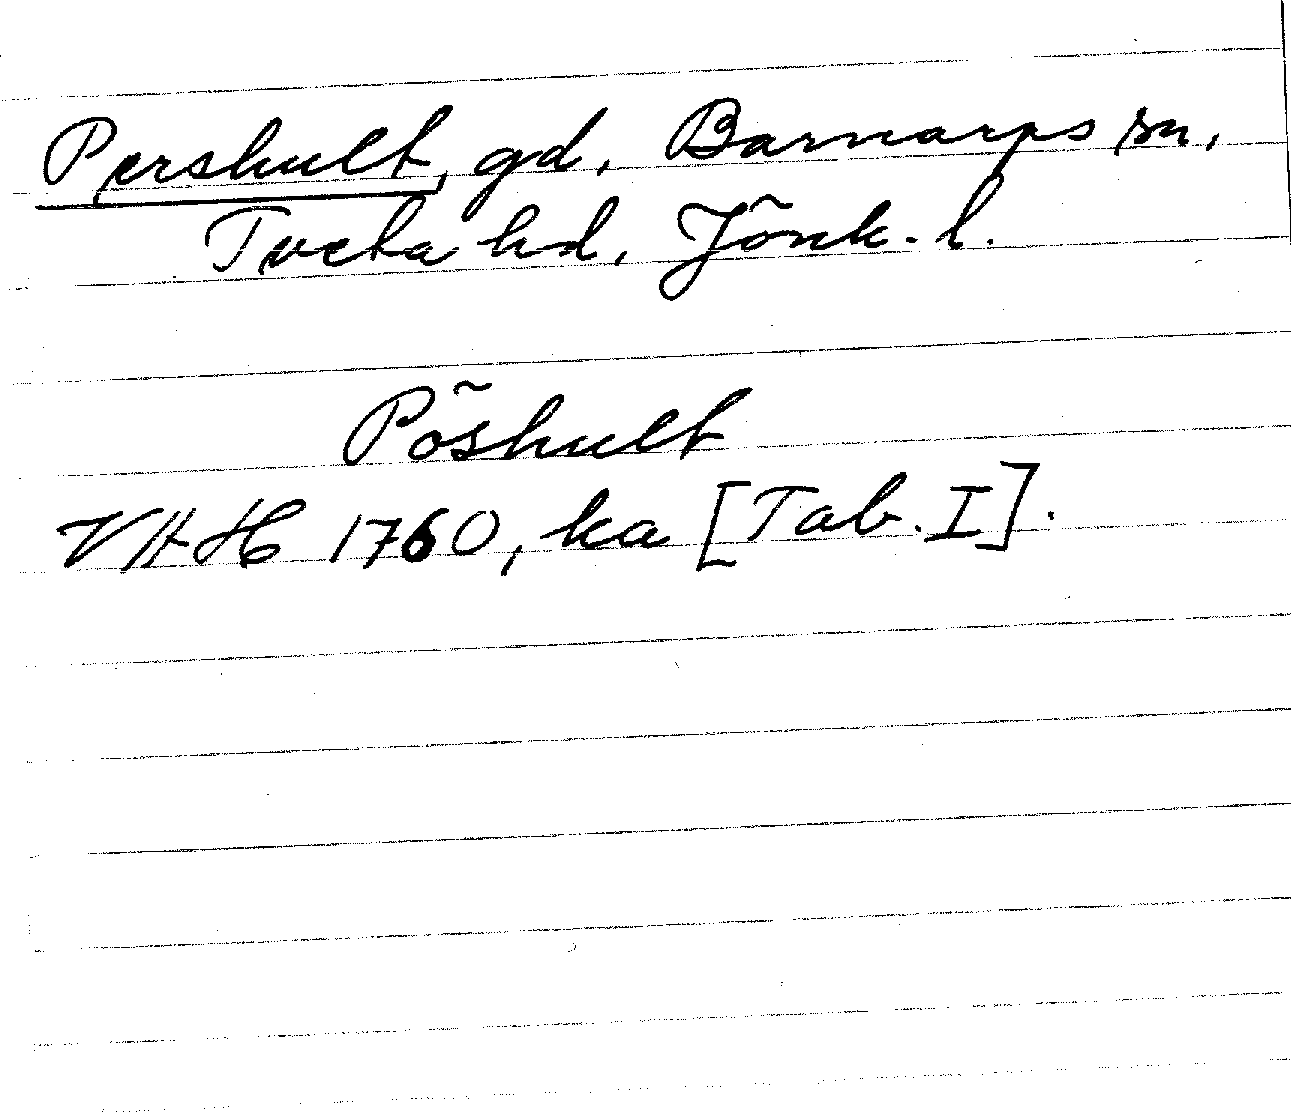 Pershult, gd, Barnarps sn,
Tveta hd, Jönk. l.
Pöshult
VHH 1760, ka [Tab. I].